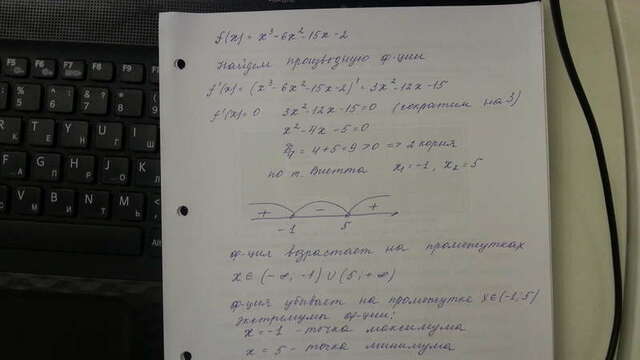 f(x) = x³-6x²-15x-2
Найдем производную ф-ции
f'(x) = (x³-6x²-15x-2)' = 3x²-12x-15
f'(x) = 0 3x²-12x-15=0 (сократим на 3)
x²-4x-5=0
D/4 = 4+5=9>0 => 2 корня
по т. Виетта x₁=-1, x₂=5
+ - +
-1 5
ф-ция возрастает на промежутках
x∈(-∞; -1)∪(5; +∞)
ф-ция убывает на промежутке x∈(-1; 5)
экстремумы ф-ции:
x=-1 - точка максимума
x=5 - точка минимума